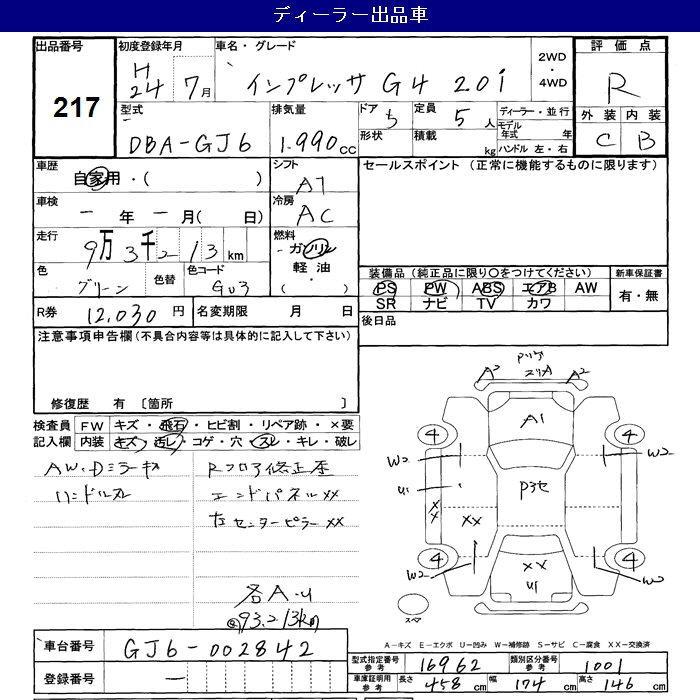 ディーラー出品車
出品番号
217
初度登録年月
H
24 7月
車名・グレード
インプレッサ G4 2.0i
2WD
・
4WD
評価点
R
外装 内装
C B
型式
DBA-GJ6
排気量
1.990cc
ドア 5
形状
定員 5人
積載 kg
ディーラー・並行
モデル年式 年
ハンドル 左・右
車歴
自家用・( )
車検
ー年ー月( 日)
走行
9万3千213km
色
グリーン
色替
色コード
G03
シフト
AT
冷房
AC
燃料
ガソリン
軽油・
( )
セールスポイント (正常に機能するものに限ります)
装備品(純正品に限り〇をつけてください)
PS PW ABS エアB AW
SR ナビ TV カワ
新車保証書
有・無
R券 12,030円
名変期限 月 日
後日品
注意事項申告欄(不具合内容等は具体的に記入して下さい)
修復歴 有 〔箇所 〕
検査員記入欄
FW キズ・飛石・ヒビ割・リペア跡・×要
内装 キズ・汚レ・コゲ・穴・スレ・キレ・破レ
AW・Dミラーキズ
ハンドルスレ
Rフロア修正歴
エンドパネルXX
左センターピラーXX
各A・U
93.213km
A3 A2
A1
4 4
W2 W2
U1
P3セ
XX XX
4 4
W2 W2
XX
U1
スペア
A-キズ E-エクボ U-凹み W-補修跡 S-サビ C-腐食 XX-交換済
車台番号 GJ6-002842
登録番号 ー
型式指定番号 参考 16962
類別区分番号 参考 1001
車庫証明用 参考 長さ 458cm 幅 174cm 高さ 146cm